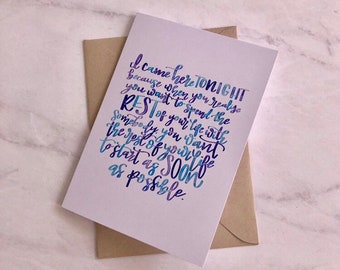 I came here TONIGHT
because when you realise
you want to spend the
REST of your life with
somebody, you want
the rest of your life
to start as SOON
as possible.